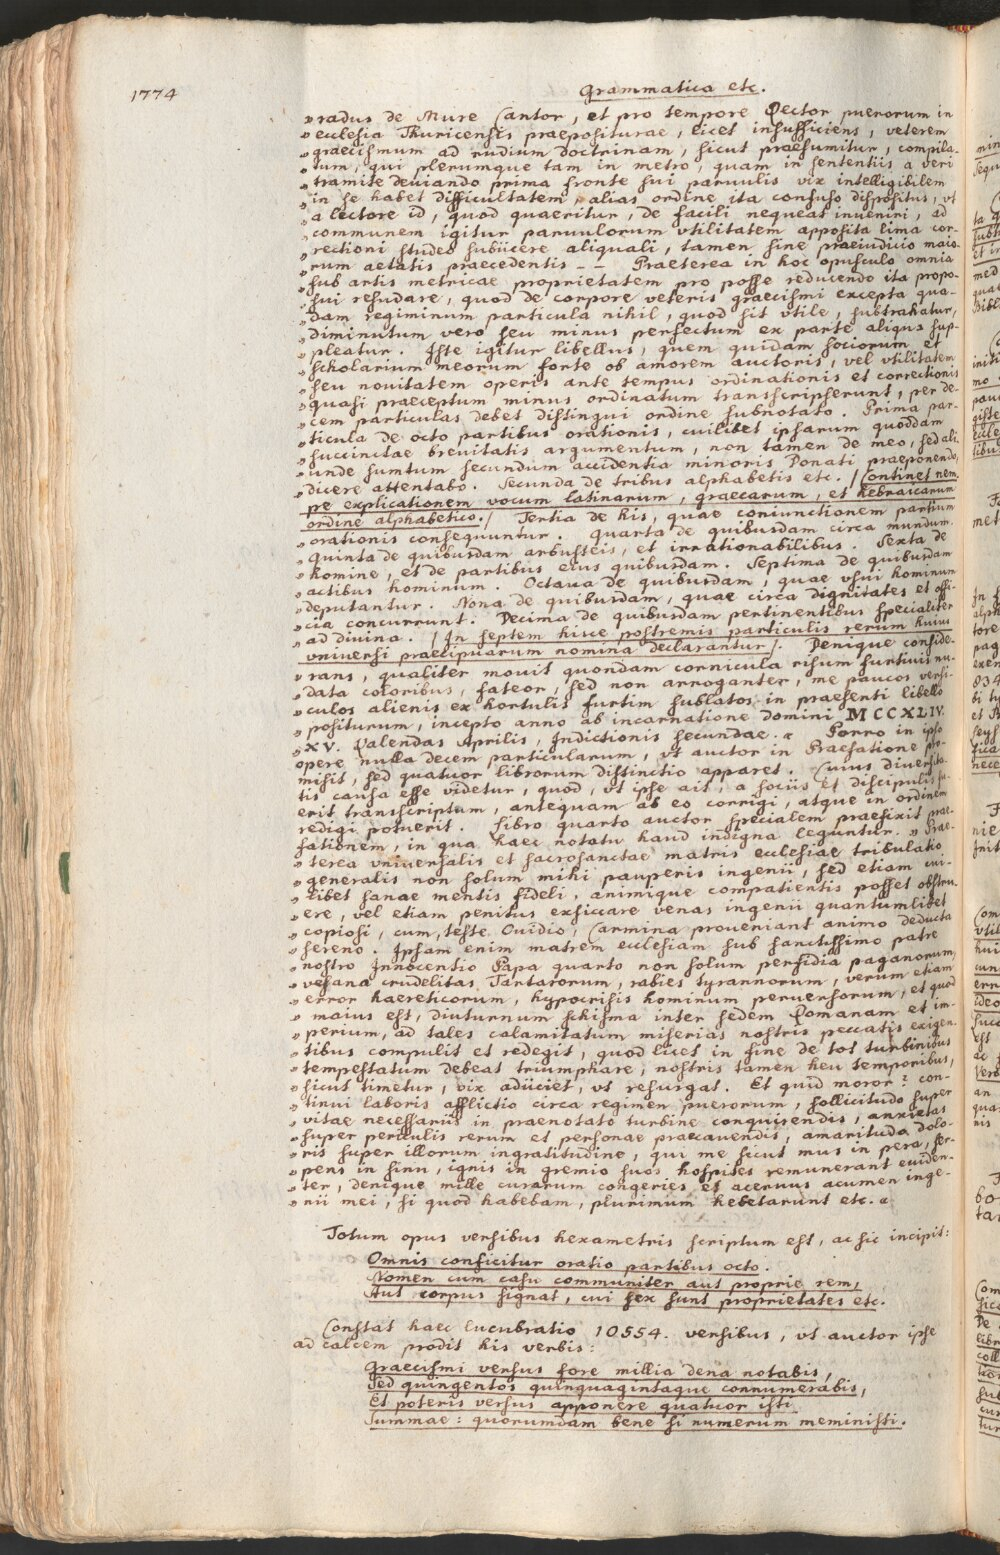 1774
Grammatica etc.
» radus de Mure Cantor, et pro tempore Rector puerorum in
» ecclesia Thuricensis praepositurae, licet insufficiens, veterem
» graecismum ad rudium doctrinam, sicut praesumitur, compila-
» tum, qui plerumque tam in metro, quam in sententiis a veri
» tramite deviando prima fronte sui parvulis vix intelligibilem
» in se habet difficultatem, alias ordine ita confuso dispositus, vt
» a lectore id, quod quaeritur, de facili nequeat inveniri, ad
» communem igitur parvulorum vtilitatem apposita lima cor-
» rectioni studeo subiicere aliquali, tamen sine praeiudicio maio-
» rum aetatis praecedentis - - Praeterea in hoc opusculo omnia
» sub artis metricae proprietatem pro posse reducendo ita propo-
» sui resudare, quod de corpore veteris graecismi excepta qua-
» dam regiminum particula nihil, quod sit vtile, subtrahatur,
» diminutum vero seu minus perfectum ex parte aliqua sup-
» pleatur. Iste igitur libellus, quem quidam sociorum et
» scholarium meorum forte ob amorem auctoris, vel vtilitatem
» seu nouitatem operis ante tempus ordinationis et correctionis
» quasi praeceptum minus ordinatum transscripserunt, per de-
» cem particulas debet distingui ordine subnotato. Prima par-
» ticula de octo partibus orationis, cuilibet ipsarum quoddam
» succinctae brevitatis argumentum, non tamen de meo, sed ali-
» unde sumtum secundum accidentia minoris Donati praeponendo,
» dicere attentabo. Secunda de tribus alphabetis etc. / Continet nem-
pe explicationem vocum latinarum, graecarum, et hebraicarum
ordine alphabetico. / Tertia de his, quae coniunctionem partium
» orationis consequuntur. Quarta de quibusdam circa mundum.
» Quinta de quibusdam arbusteis, et irrationabilibus. Sexta de
» homine, et de partibus eius quibusdam. Septima de quibusdam
» actibus hominum. Octaua de quibusdam, quae vsui hominum
» deputantur. Nona de quibusdam, quae circa dignitates et offi-
» cia concurrunt. Decima de quibusdam pertinentibus specialiter
» ad divina. / In septem hisce postremis particulis rerum huius
vniversi praecipuarum nomina declarantur /. Denique conside-
» rans, qualiter mouit quondam cornicula risum furtivis nu-
» data coloribus, fateor, sed non arroganter, me paucos versi-
» culos alienis ex hortulis furtim sublatos in praesenti libello
» positurum, incepto anno ab incarnatione domini MCCXLIV.
» XV. Kalendas Aprilis, Indictionis secundae. « Porro in ipso
opere nulla decem particularum, vt auctor in Praefatione pro-
misit, sed quatuor librorum distinctio apparet. Cuius diversita-
tis causa esse videtur, quod, vt ipse ait, a sociis et discipulis fu-
erit transscriptum, antequam ab eo corrigi, atque in ordinem
redigi potuerit. Libro quarto auctor specialem praefixit prae-
fationem, in qua haec notatu haud indigna leguntur. » Prae-
» terea vniversalis et sacrosanctae matris ecclesiae tribulatio
» generalis non solum mihi pauperis ingenii, sed etiam cui-
» libet sanae mentis fideli, animique compatientis posset obstru-
» ere, vel etiam penitus exsiccare venas ingenii quantumlibet
» copiosi, cum, teste Ouidio, Carmina proveniant animo deducta
» sereno. Ipsam enim matrem ecclesiam sub sanctissimo patre
» nostro Innocentio Papa quarto non solum perfidia paganorum,
» vesana crudelitas Tartarorum, rabies tyrannorum, verum etiam
» error haereticorum, hypocrisis hominum perversorum, et quod
» maius est, diuturnum schisma inter sedem Romanam et im-
» perium, ad tales calamitatum miserias nostris peccatis exigen-
» tibus compulit et redegit, quod licet in fine de tot turbinibus
» tempestatum debeat triumphare, nostris tamen heu temporibus,
» sicut timetur, vix adiiciet, vt resurgat. Et quid moror? con-
» tinui laboris afflictio circa regimen puerorum, sollicitudo super
» vitae necessariis in praenotato turbine conquirendis, anxietas
» super periculis rerum et personae praecavendis, amaritudo dolo-
» ris super illorum ingratitudine, qui me sicut mus in pera, ser-
» pens in sinu, ignis in gremio suos hospites remunerant eviden-
» ter, denique mille curarum congeries et acervus acumen inge-
» nii mei, si quod habebam, plurimum hebetarunt etc. «
Totum opus versibus hexametris scriptum est, ac sic incipit:
Omnis conficitur oratio partibus octo.
Nomen cum casu communiter aut proprie rem,
Aut corpus signat, cui sex sunt proprietates etc.
Constat haec lucubratio 10554. versibus, vt auctor ipse
ad calcem prodit his verbis:
Graecismi versus fore millia dena notabis,
Sed quingentos quinquagintaque connumerabis,
Et poteris versus apponere quatuor isti
Summae: quorumdam bene si numerum meministi.